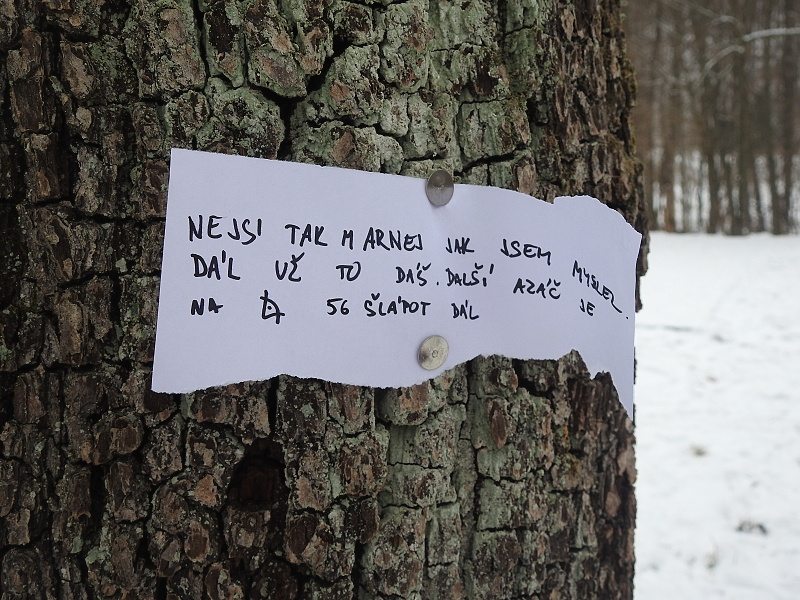 NEJSI TAK MARNEJ JAK JSEM MYSLEL.
DÁL UŽ TO DÁŠ. DALŠÍ AZÁČ JE
NA 56 ŠLÁPOT DÁL